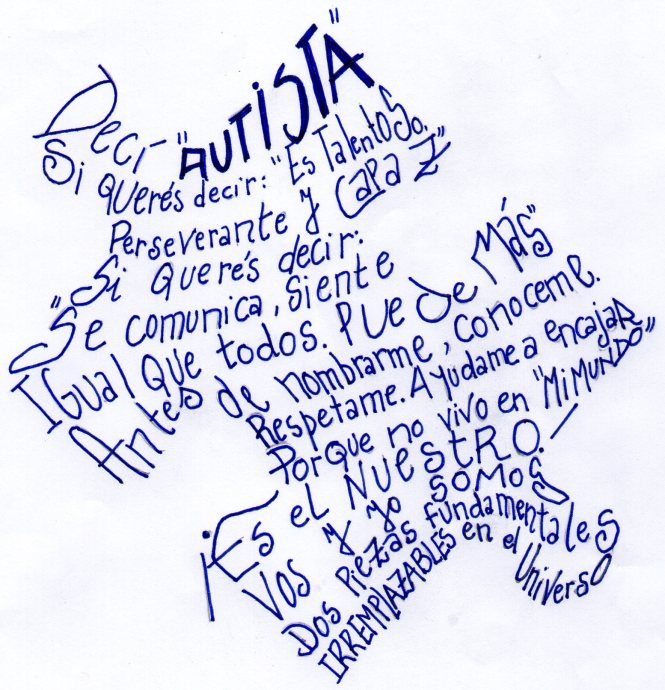 Decí "AUTISTA"
Si querés decir: "Es TalentOSo,
Perseverante y CapaZ"
Si querés decir:
"Se comunica, siente
Igual que todos. Puede Más"
Antes de nombrarme, conoceme.
Respetame. Ayudame a encajar
Porque no vivo en "MI MUNDO"
¡Es el NuestRO.-
Vos y yo somos
Dos Piezas fundamentales
IRREMPLAZABLES en el Universo